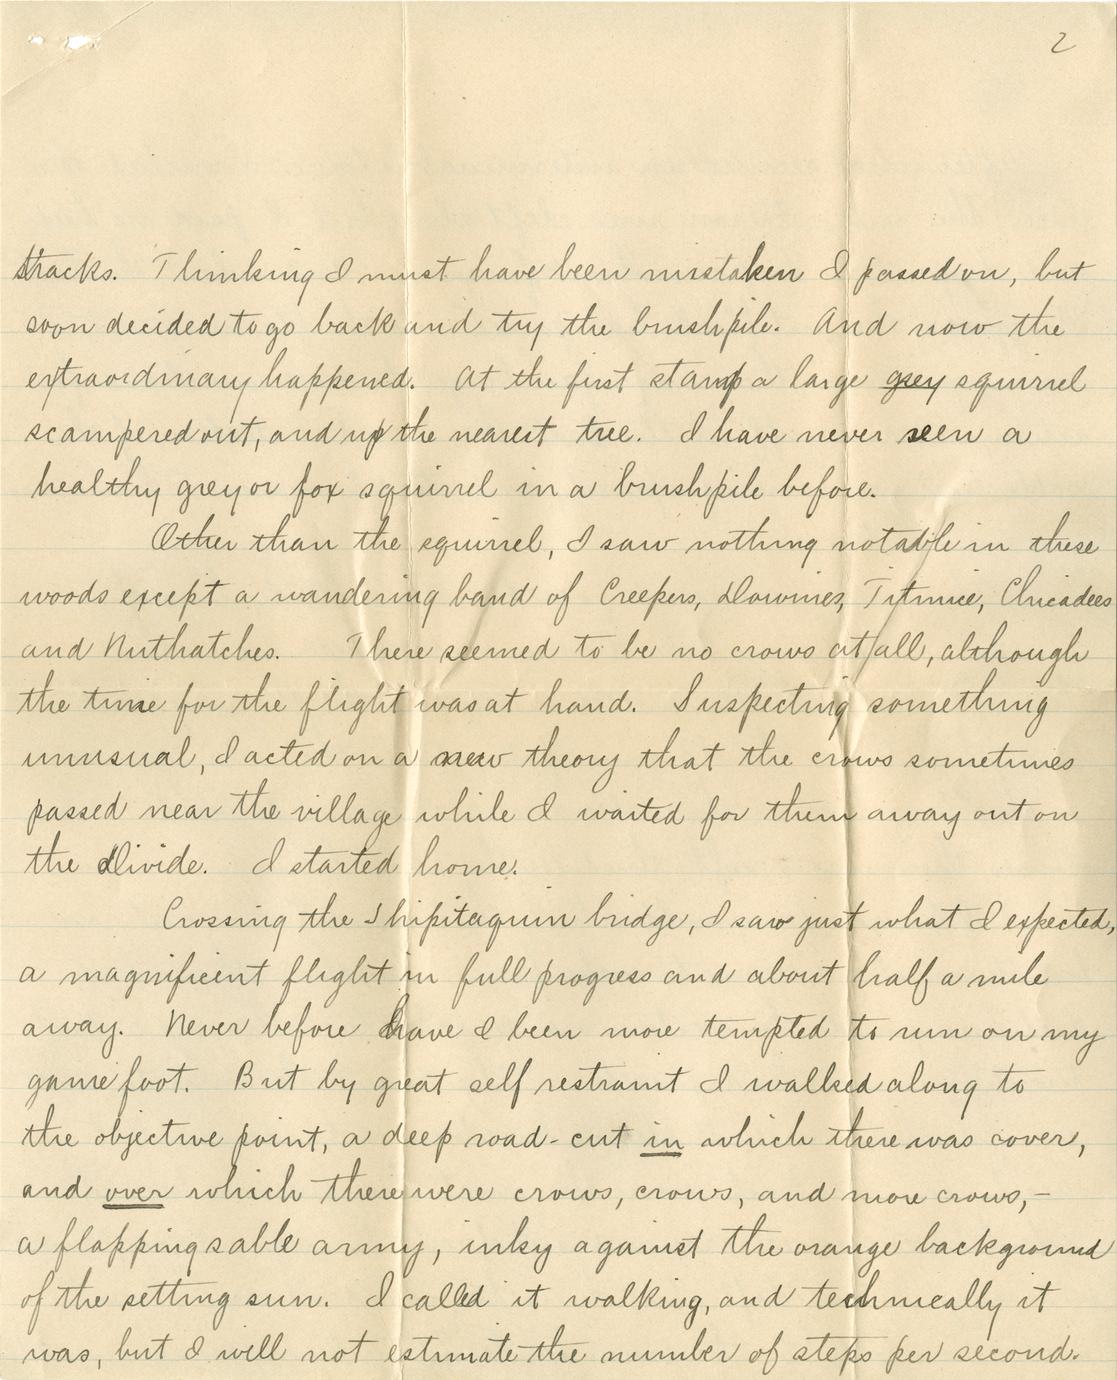 2
tracks. Thinking I must have been mistaken I passed on, but
soon decided to go back and try the brushpile. And now the
extraordinary happened. At the first stamp a large grey squirrel
scampered out, and up the nearest tree. I have never seen a
healthy grey or fox squirrel in a brushpile before.
Other than the squirrel, I saw nothing notable in these
woods except a wandering band of Creepers, Downies, Titmice, Chicadees
and Nuthatches. There seemed to be no crows at all, although
the time for the flight was at hand. Suspecting something
unusual, I acted on a new theory that the crows sometimes
passed near the village while I waited for them away out on
the Divide. I started home.
Crossing the Shipitaquin bridge, I saw just what I expected,
a magnificent flight in full progress and about half a mile
away. Never before have I been more tempted to run on my
game foot. But by great self restraint I walked along to
the objective point, a deep road-cut in which there was cover,
and over which there were crows, crows, and more crows,-
a flapping sable army, inky against the orange background
of the setting sun. I called it walking, and technically it
was, but I will not estimate the number of steps per second.